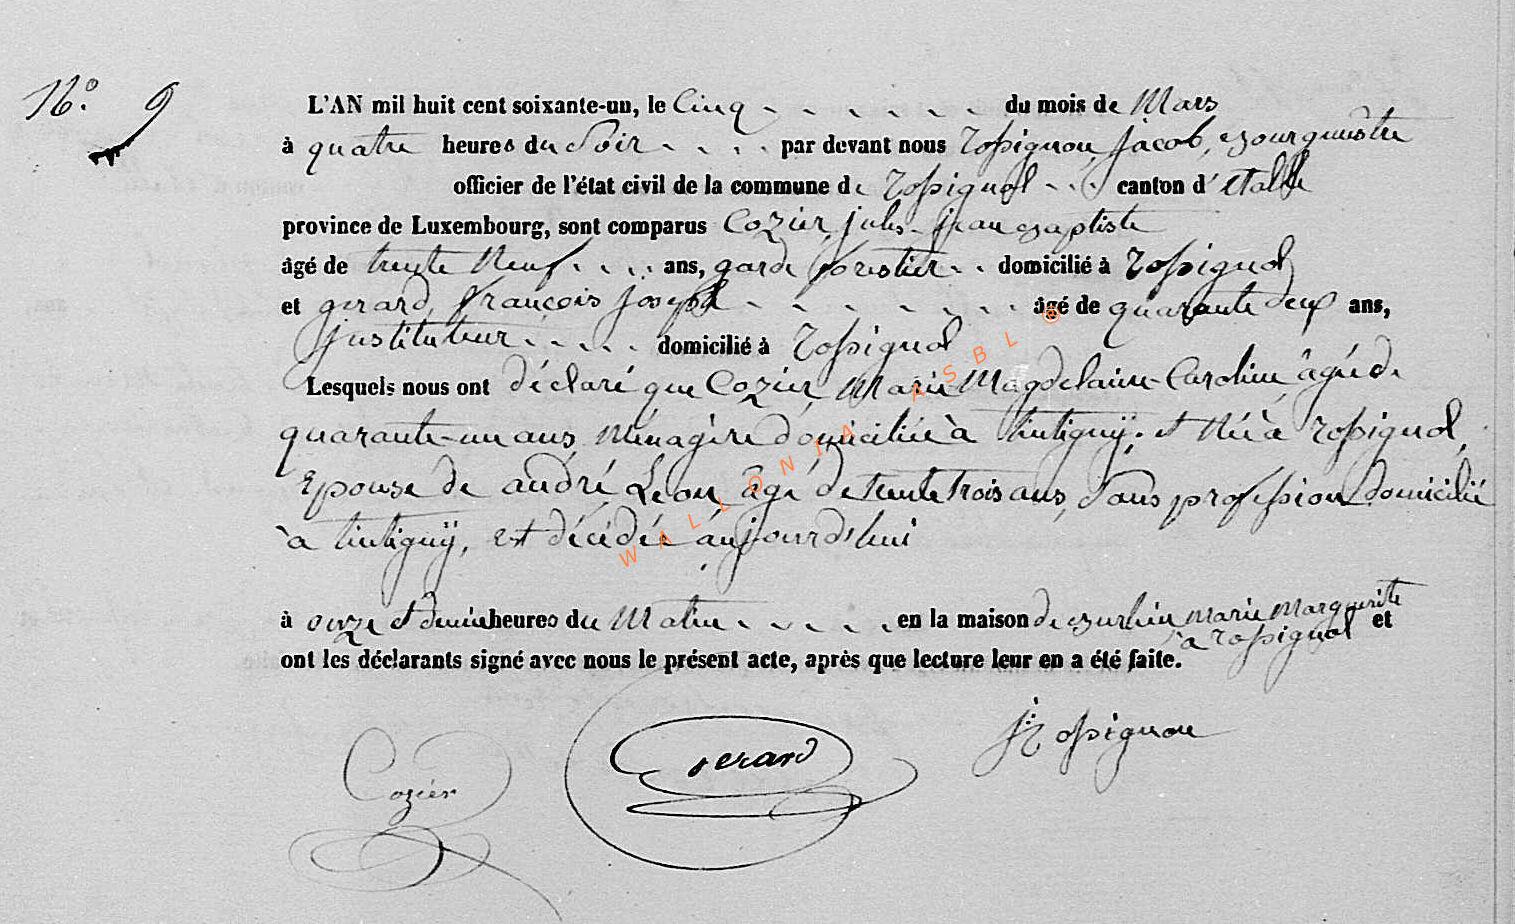 N° 9
L'AN mil huit cent soixante-un, le Cinq - - - - - - du mois de Mars
à quatre heures du Soir - - - - par devant nous Rossignon, Jacob, Bourguestre
officier de l'état civil de la commune de Rossignol - - - canton d'Etalle
province de Luxembourg, sont comparus Cozier, jules - jean baptiste
âgé de trente Neuf - - - - ans, garde forestier - - domicilié à Rossignol
et gerard, françois joseph - - - - - - - - âgé de quarante deux ans,
instituteur - - - - - domicilié à Rossignol
Lesquels nous ont déclaré que Cozier, Marie Magdelaine - Caroline âgée de
quarante-un ans, Ménagère domiciliée à tintigny, et Née à Rossignol,
Epouse de andré Léon âgé de trente trois ans, Sans profession domicilié
à tintigny, est décédée aujourd'hui
à onze et demie heures du Matin - - - - - en la maison de Marie Marguerite
à Rossignol et
ont les déclarants signé avec nous le présent acte, après que lecture leur en a été faite.
J. Rossignon
Gerard
Cozier
WALLONIA ASBL ©